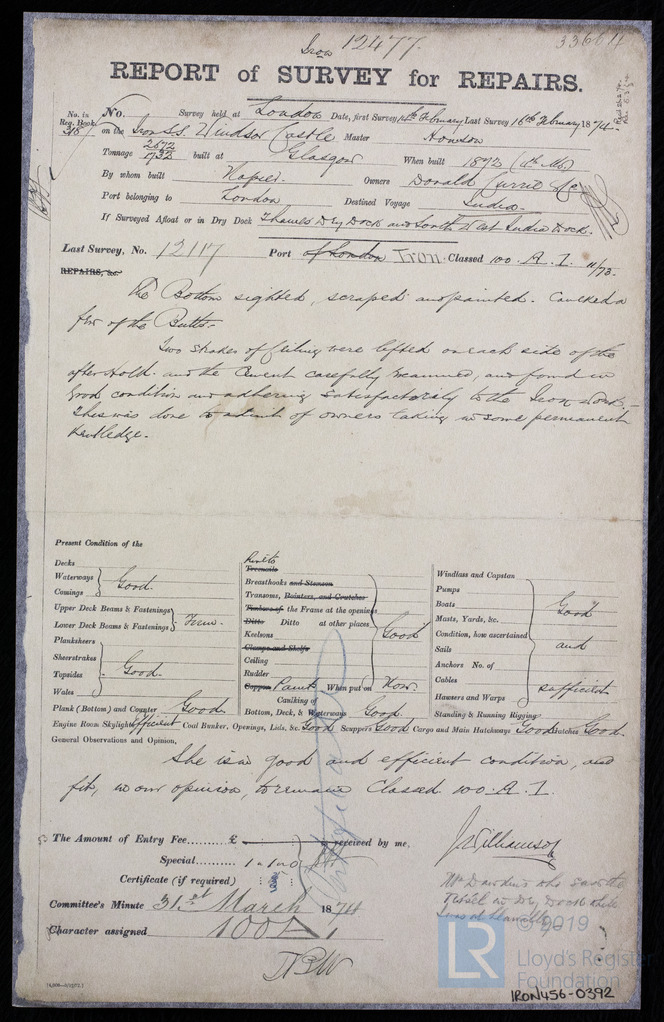 Iron 12477.
33664
REPORT of SURVEY for REPAIRS.
No. in Reg. Book 318
No. Survey held at London Date, first Survey 14th February Last Survey 16th February 1874.
on the Iron S.S. Windsor Castle Master Howson
Tonnage 2672 1732 built at Glasgow When built 1872 (11th Mo)
By whom built Napier. Owners Donald Currie & Co
Port belonging to London Destined Voyage India.
If Surveyed Afloat or in Dry Dock Thames Dry Dock and South West India Dock.
Last Survey, No. 12117 Port of London Iron Classed 100. A. 1. 11/73.
REPAIRS, &c.
The Bottom sighted, scraped and painted. Caulked a
few of the Butts.
Two strakes of ceiling were lifted on each side of the
after Hold and the Cement carefully examined, and found in
good condition and adhering satisfactorily to the Iron Work.—
This was done to admit of owners taking in some permanent
Kentledge.
Present Condition of the
Decks
Waterways
Comings
Good.
Upper Deck Beams & Fastenings
Lower Deck Beams & Fastenings
Firm.
Planksheers
Sheerstrakes
Topsides
Wales
Good.
Plank (Bottom) and Counter Good
Rivets
Treenails
Breasthooks and Stemson
Transoms, Pointers, and Crutches
Timbers of the Frame at the openings
Ditto Ditto at other places
Keelsons
Clamps and Shelfs
Ceiling
Rudder
Good
Copper Paint When put on Now.
Caulking of
Bottom, Deck, & Waterways Good.
Windlass and Capstan
Pumps
Boats
Masts, Yards, &c.
Condition, how ascertained
Sails
Anchors No. of
Cables
Hawsers and Warps
Good
and
sufficient
Standing & Running Rigging
Engine Room Skylights Efficient Coal Bunker, Openings, Lids, &c. Good Scuppers Good Cargo and Main Hatchways Good Hatches Good.
General Observations and Opinion,
She is in good and efficient condition, and
fit, in our opinion, to remain Classed 100. A. 1.
The Amount of Entry Fee......... £ : : is received by me,
Special.......... 1 " 1 " 0
Certificate (if required)
Committee's Minute 31st March 1874
Character assigned 100 A 1
J. Williamson
Mr Dawkins who saw the
Vessel in Dry Dock while
© 2019
LR
Lloyd's Register
Foundation
IRON456-0392